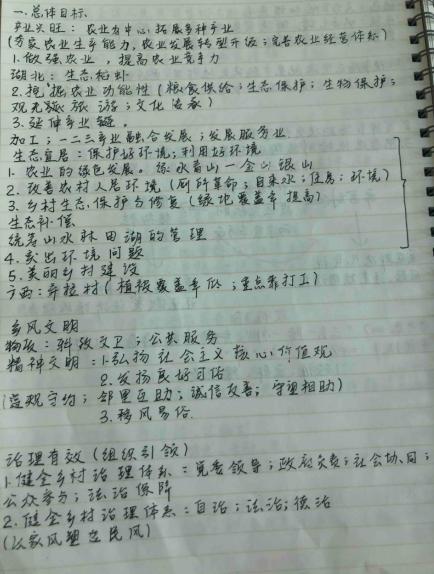 一.总体目标
产业兴旺：农业为中心拓展多种产业
(夯实农业生产能力,农业发展转型升级;完善农业经营体系)
1.做强农业，提高农业竞争力
湖北：生态稻虾
2.挖掘农业功能性(粮食供给;生态保护;生物保护;
观光旅游;文化传承)
3.延伸产业链。
加工;一二三产业融合发展;发展服务业
生态宜居:保护好环境;利用好环境
1.农业的绿色发展。绿水青山—金山银山
2.改善农村人居环境(厕所革命;自来水;住房;环境)
3.乡村生态保护与修复(绿地覆盖率提高)
生态补偿
统筹山水林田湖的管理
4.突出环境问题
5.美丽乡村建设
广西:弄拉村(植被覆盖率低;重点靠打工)
乡风文明
物质:科教文卫;公共服务
精神文明:1.弘扬社会主义核心价值观
2.发扬良好习俗
(遵规守约;邻里互助;诚信友善;守望相助)
3.移风易俗.
治理有效(组织引领)
1.健全乡村治理体系:党委领导;政府负责;社会协同;
公众参与;法治保障
2.健全乡村治理体系:自治;法治;德治
(以家风塑造民风)